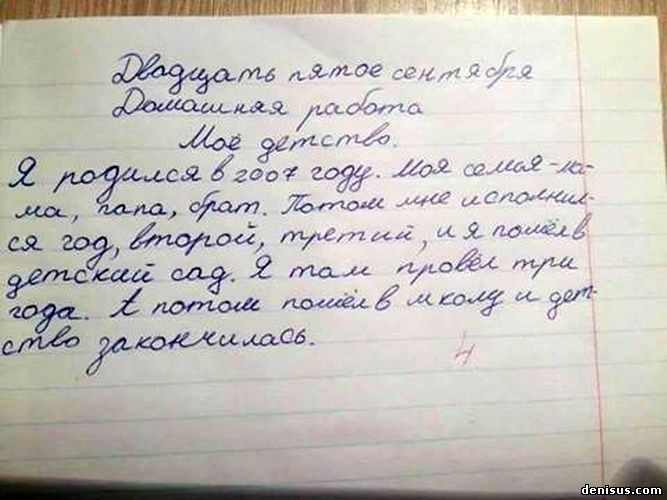 Двадцать пятое сентября
Домашняя работа
Моё детство.
Я родился в 2007 году. Моя семья - ма-
ма, папа, брат. Потом мне исполнил-
ся год, второй, третий, и я пошёл в
детский сад. Я там провёл три
года. А потом пошёл в школу и дет-
ство закончилась.
4
denisus.com